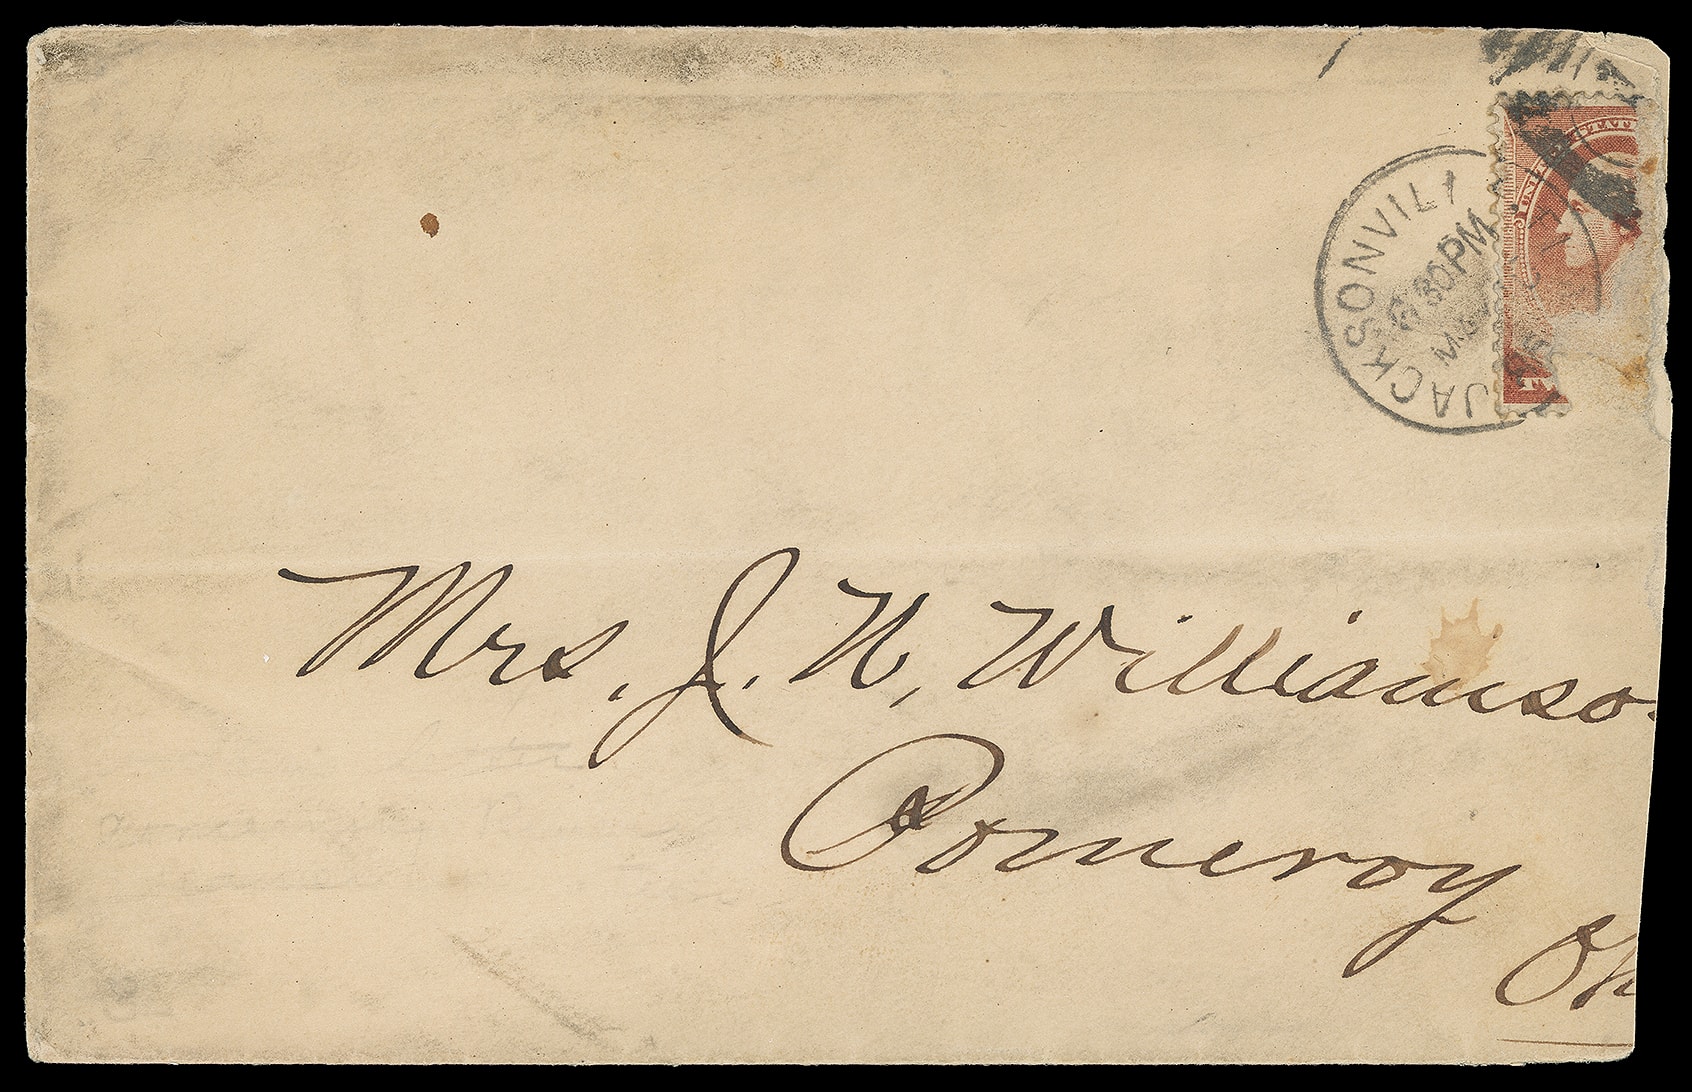 JACKSONVILL
6 30 PM
Mrs. J. N. Williamso
Pomeroy
Oh